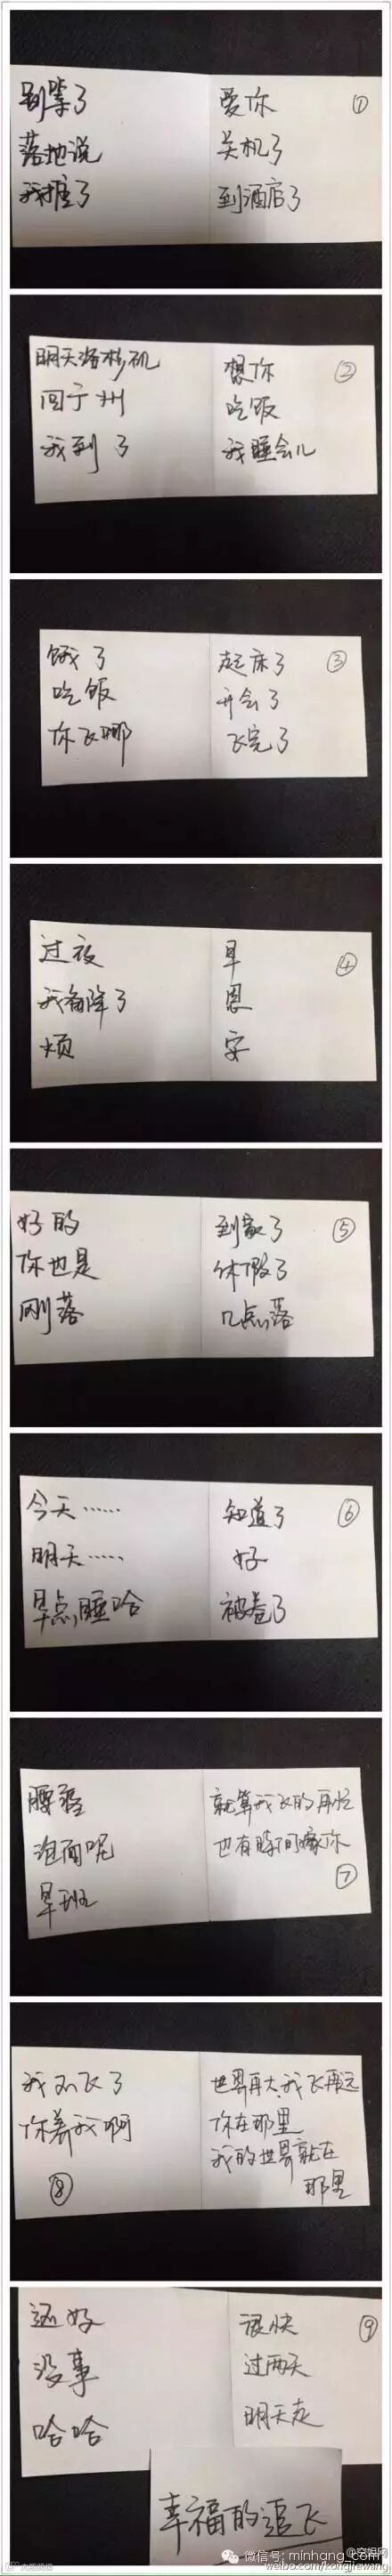 别等了
落地说
我推了
爱你
①
关机了
到酒店了
明天洛杉矶
回广州
我到了
想你
②
吃饭
我睡会儿
饿了
吃饭
你飞哪
起床了
③
开会了
飞完了
过夜
我备降了
烦
早
④
恩
安
好的
你也是
刚落
到家了
⑤
休假了
几点落
今天……
明天……
早点睡哈
知道了
⑥
好
被卷了
腰疼
泡面呢
早班
就算我飞的再忙
也有时间嫁你
⑦
我不飞了
你养我啊
⑧
世界再大,我飞再远
你在那里
我的世界就在
那里
还好
没事
哈哈
很快
⑨
过两天
明天走
幸福的追飞
微信号: minhang_com
weibo.com/kongjiewang